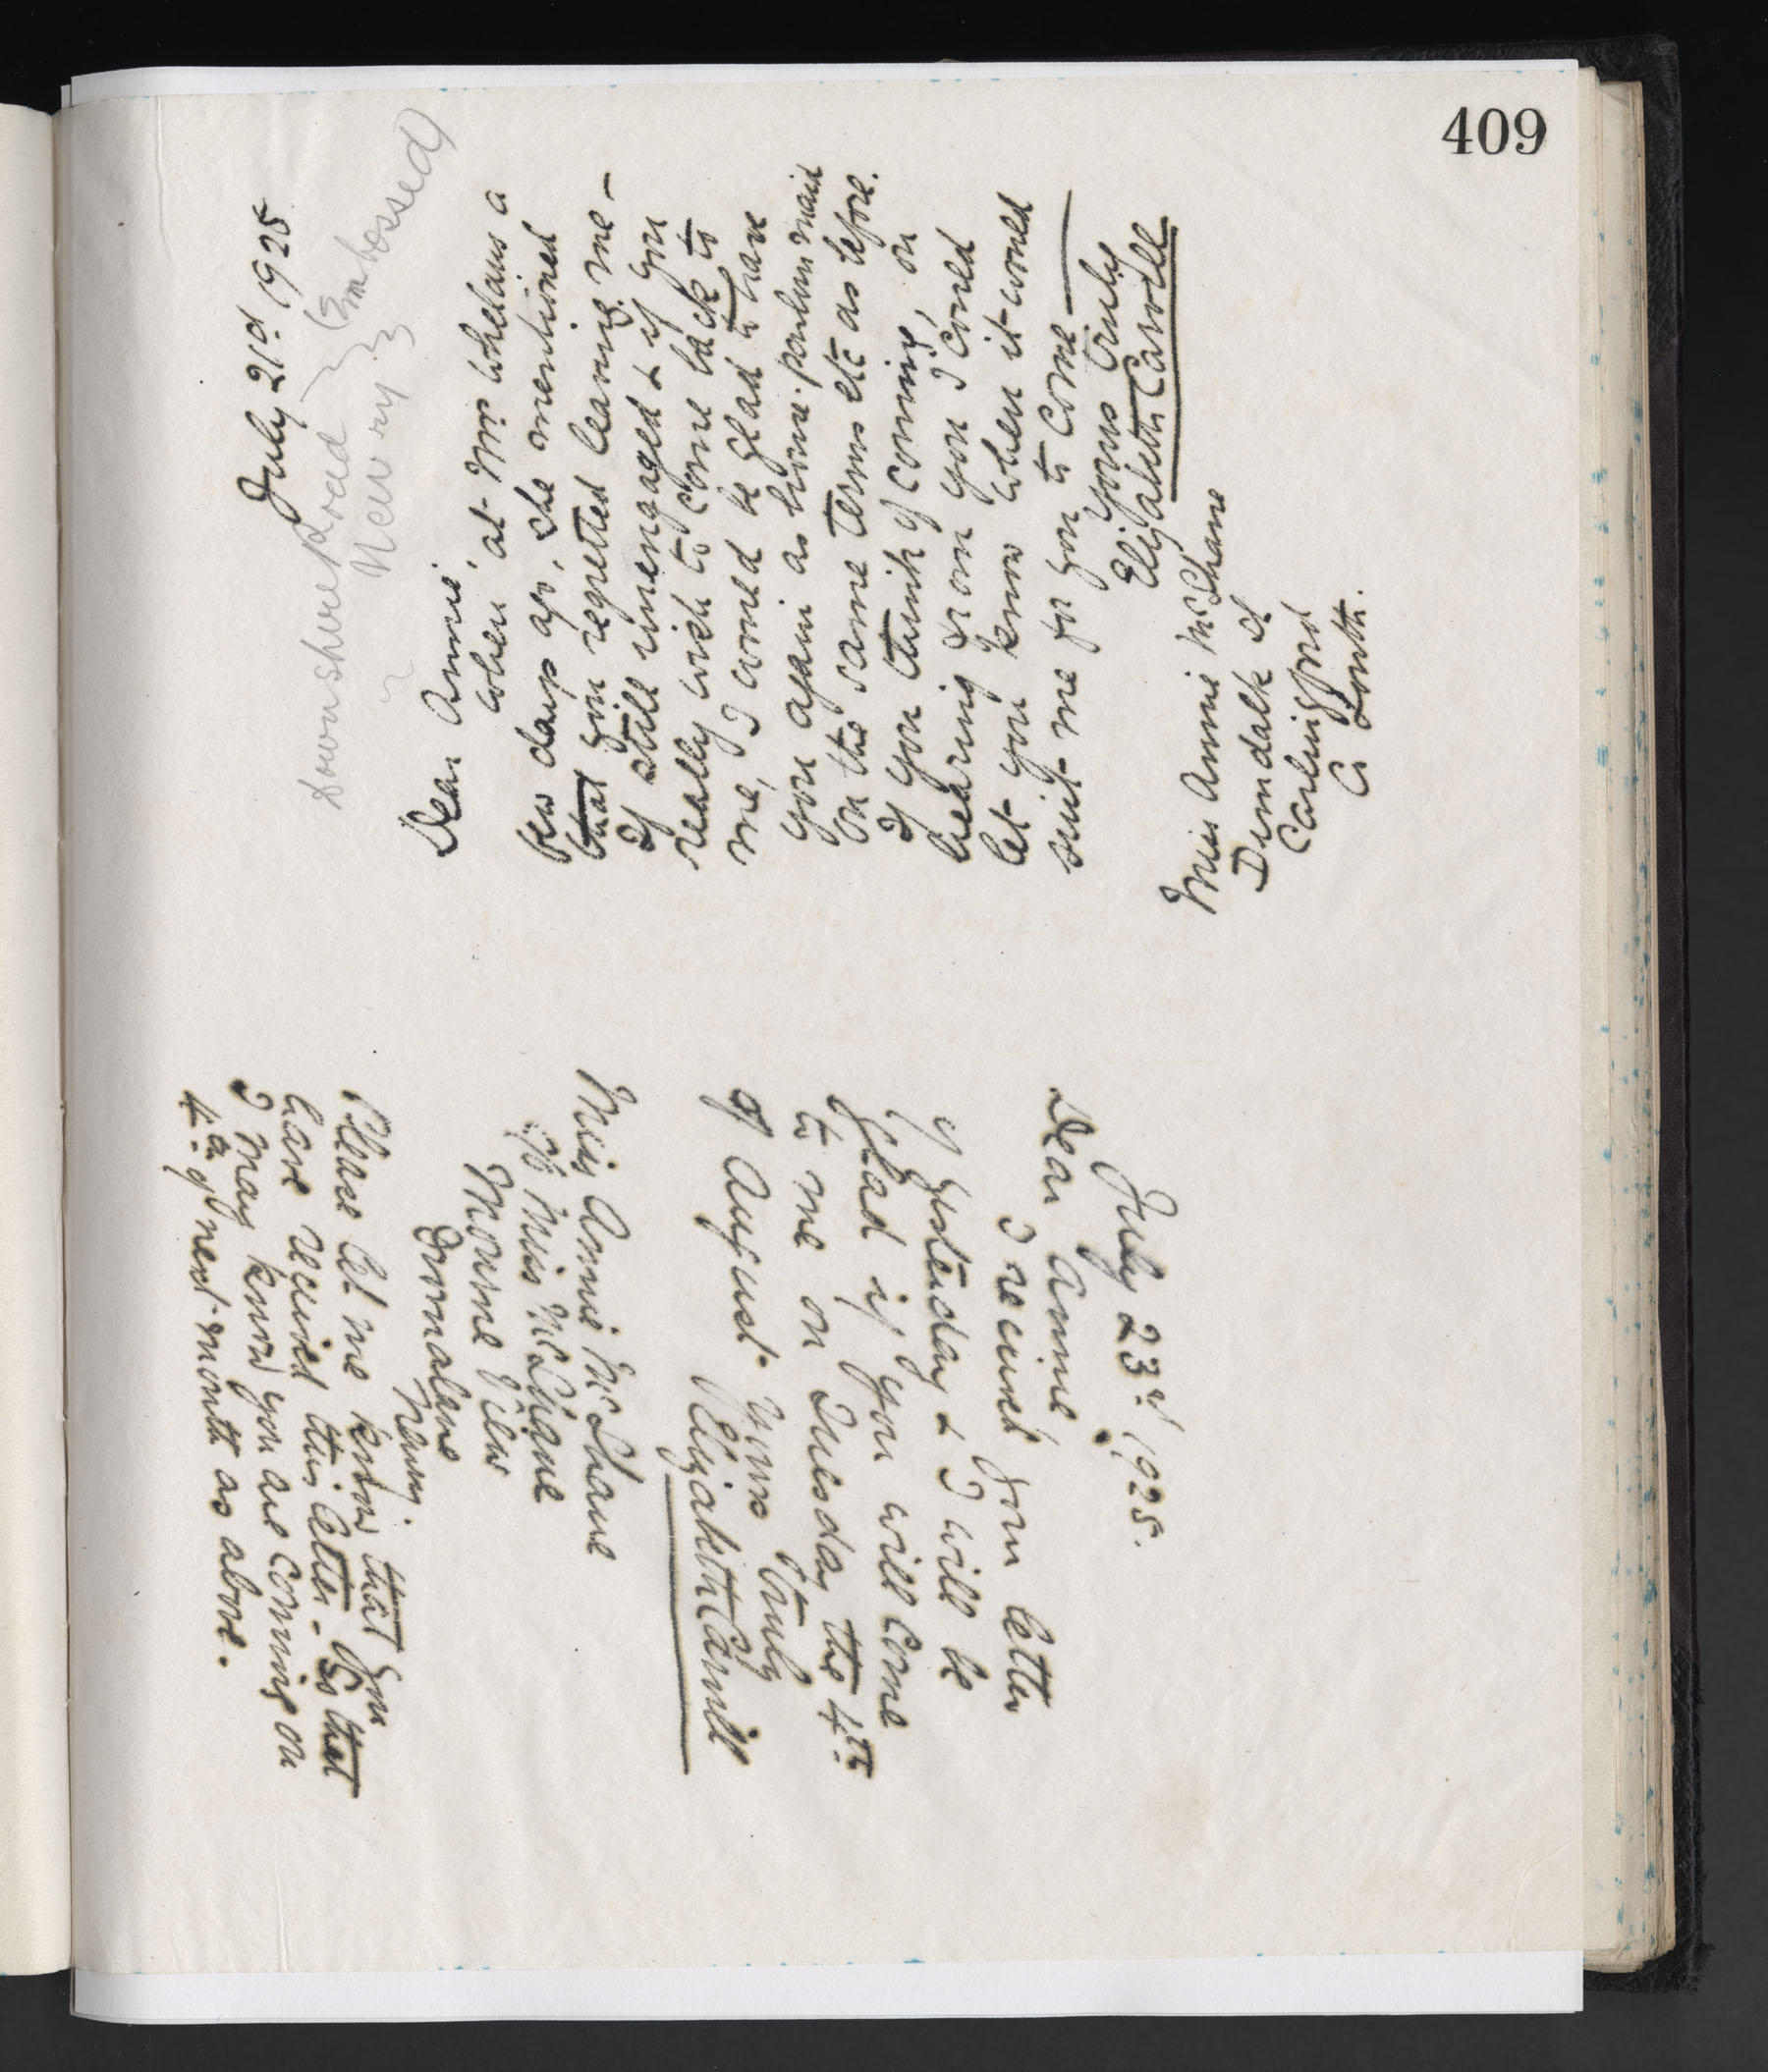 409
July 21st 1925
Downshire Road } (Embossed)
Newry }
Dear Annie,
when at Mrs Whelans a
few days ago, she mentioned
that you regretted leaving me –
If still unengaged & if you
really wish to come back to
me, I would be glad to have
you again as house-parlourmaid
on the same terms etc as before.
If you think of coming, on
hearing from you I could
let you know when it would
suit me for you to come —
Yours truly
Elizabeth Carvill
Miss Annie McShane
Dundalk St
Carlingford
Co Louth.
July 23rd 1925.
Dear Annie
I received your letter
of yesterday & I will be
glad if you will come
to me on Tuesday the 4th
of August. Yours truly
Elizabeth Carvill
Miss Annie McShane
c/o Miss McShane
Mourne View
Drumalane
Newry.
Please let me know that you
have received this letter – so that
I may know you are coming on
4th of next month as above.